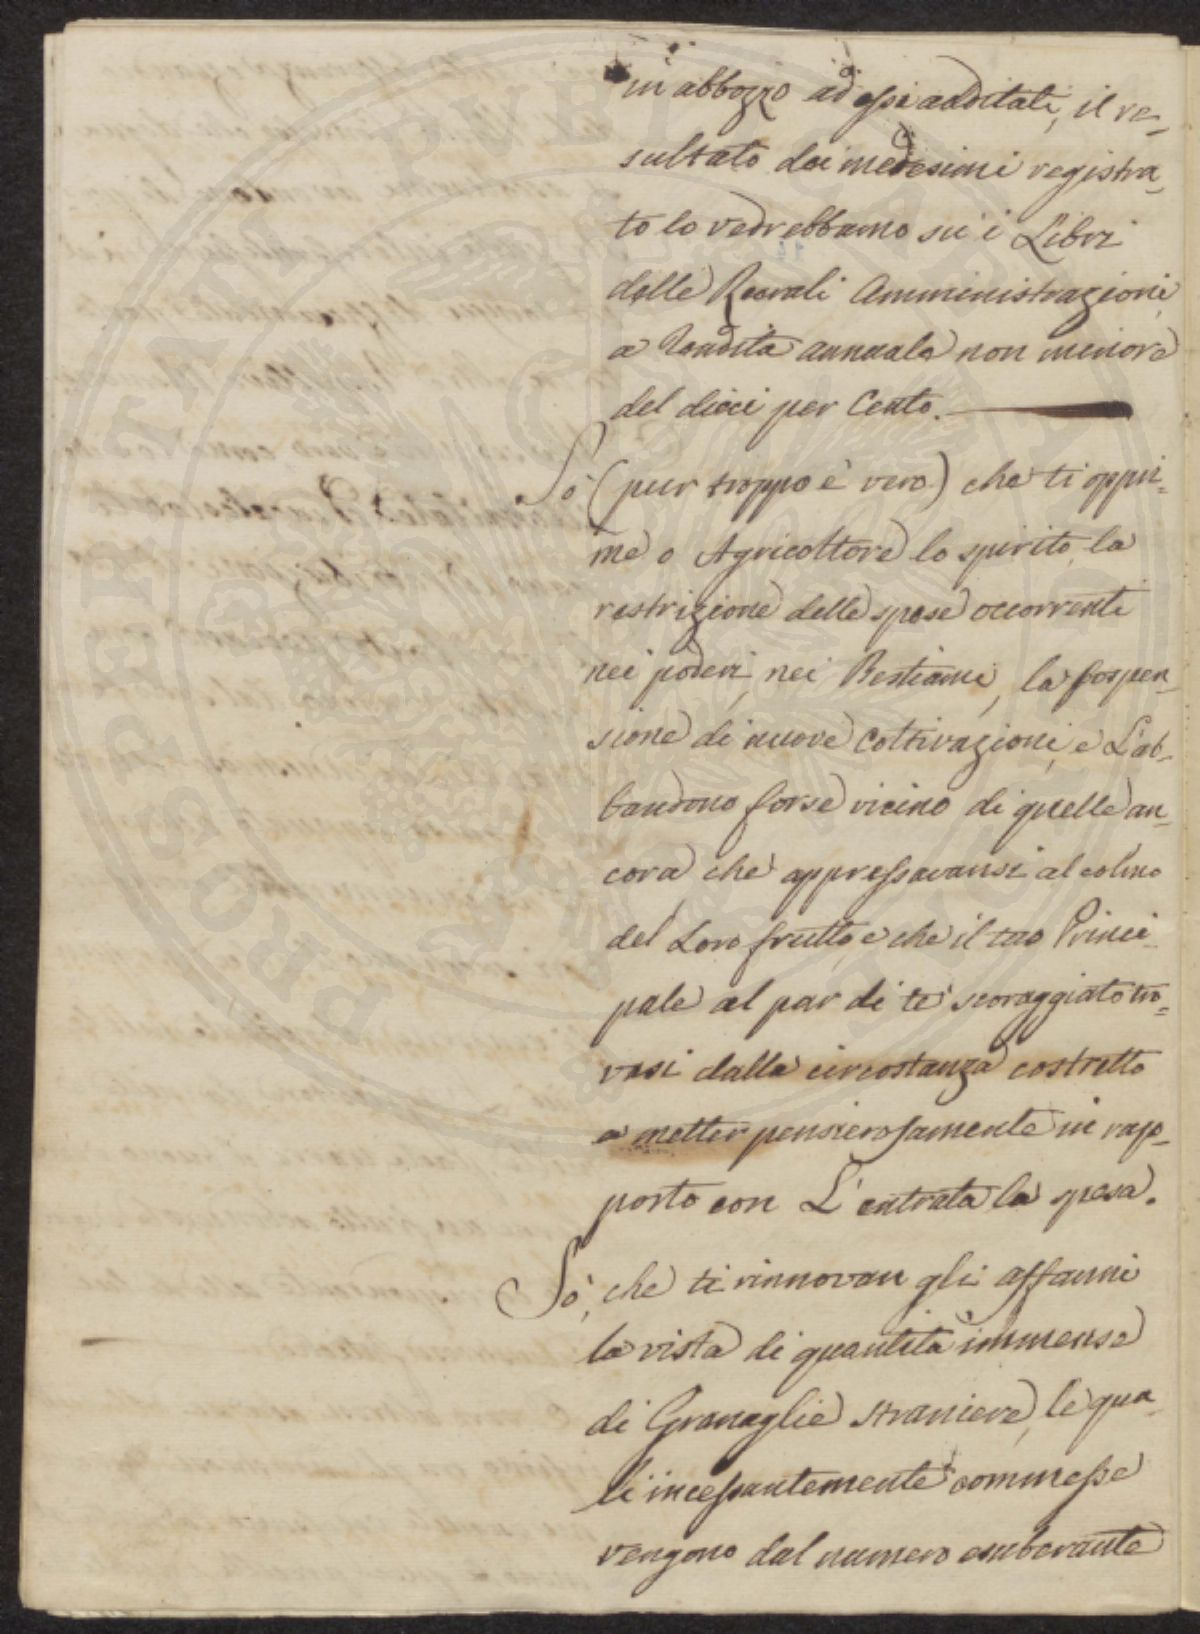 in abbozzo ad essi additati, il re-
sultato dei medesimi registra-
to lo vedrebbamo su i Libri
delle Rurali Amministrazioni,
a Rendita annuale non minore
del dieci per Cento.
Sò (pur troppo è vero) che ti oppri-
me o Agricoltore lo spirito, la
restrizione delle spese occorrenti
nei poderi, nei Bestiami, la sospen-
sione di nuove Coltivazioni, e L'ab-
bandono forse vicino di quelle an-
cora che appressavansi al colmo
del Loro frutto, e che il tuo Princi-
pale al par di te scoraggiato tro-
vasi dalla circostanza costretto
a metter pensierosamente in rap-
porto con L'entrata la spesa.
Sò, che ti rinnovan gli affanni
la vista di quantità immense
di Granaglie straniere, le qua-
li incessantemente commesse
vengono dal numero esuberante